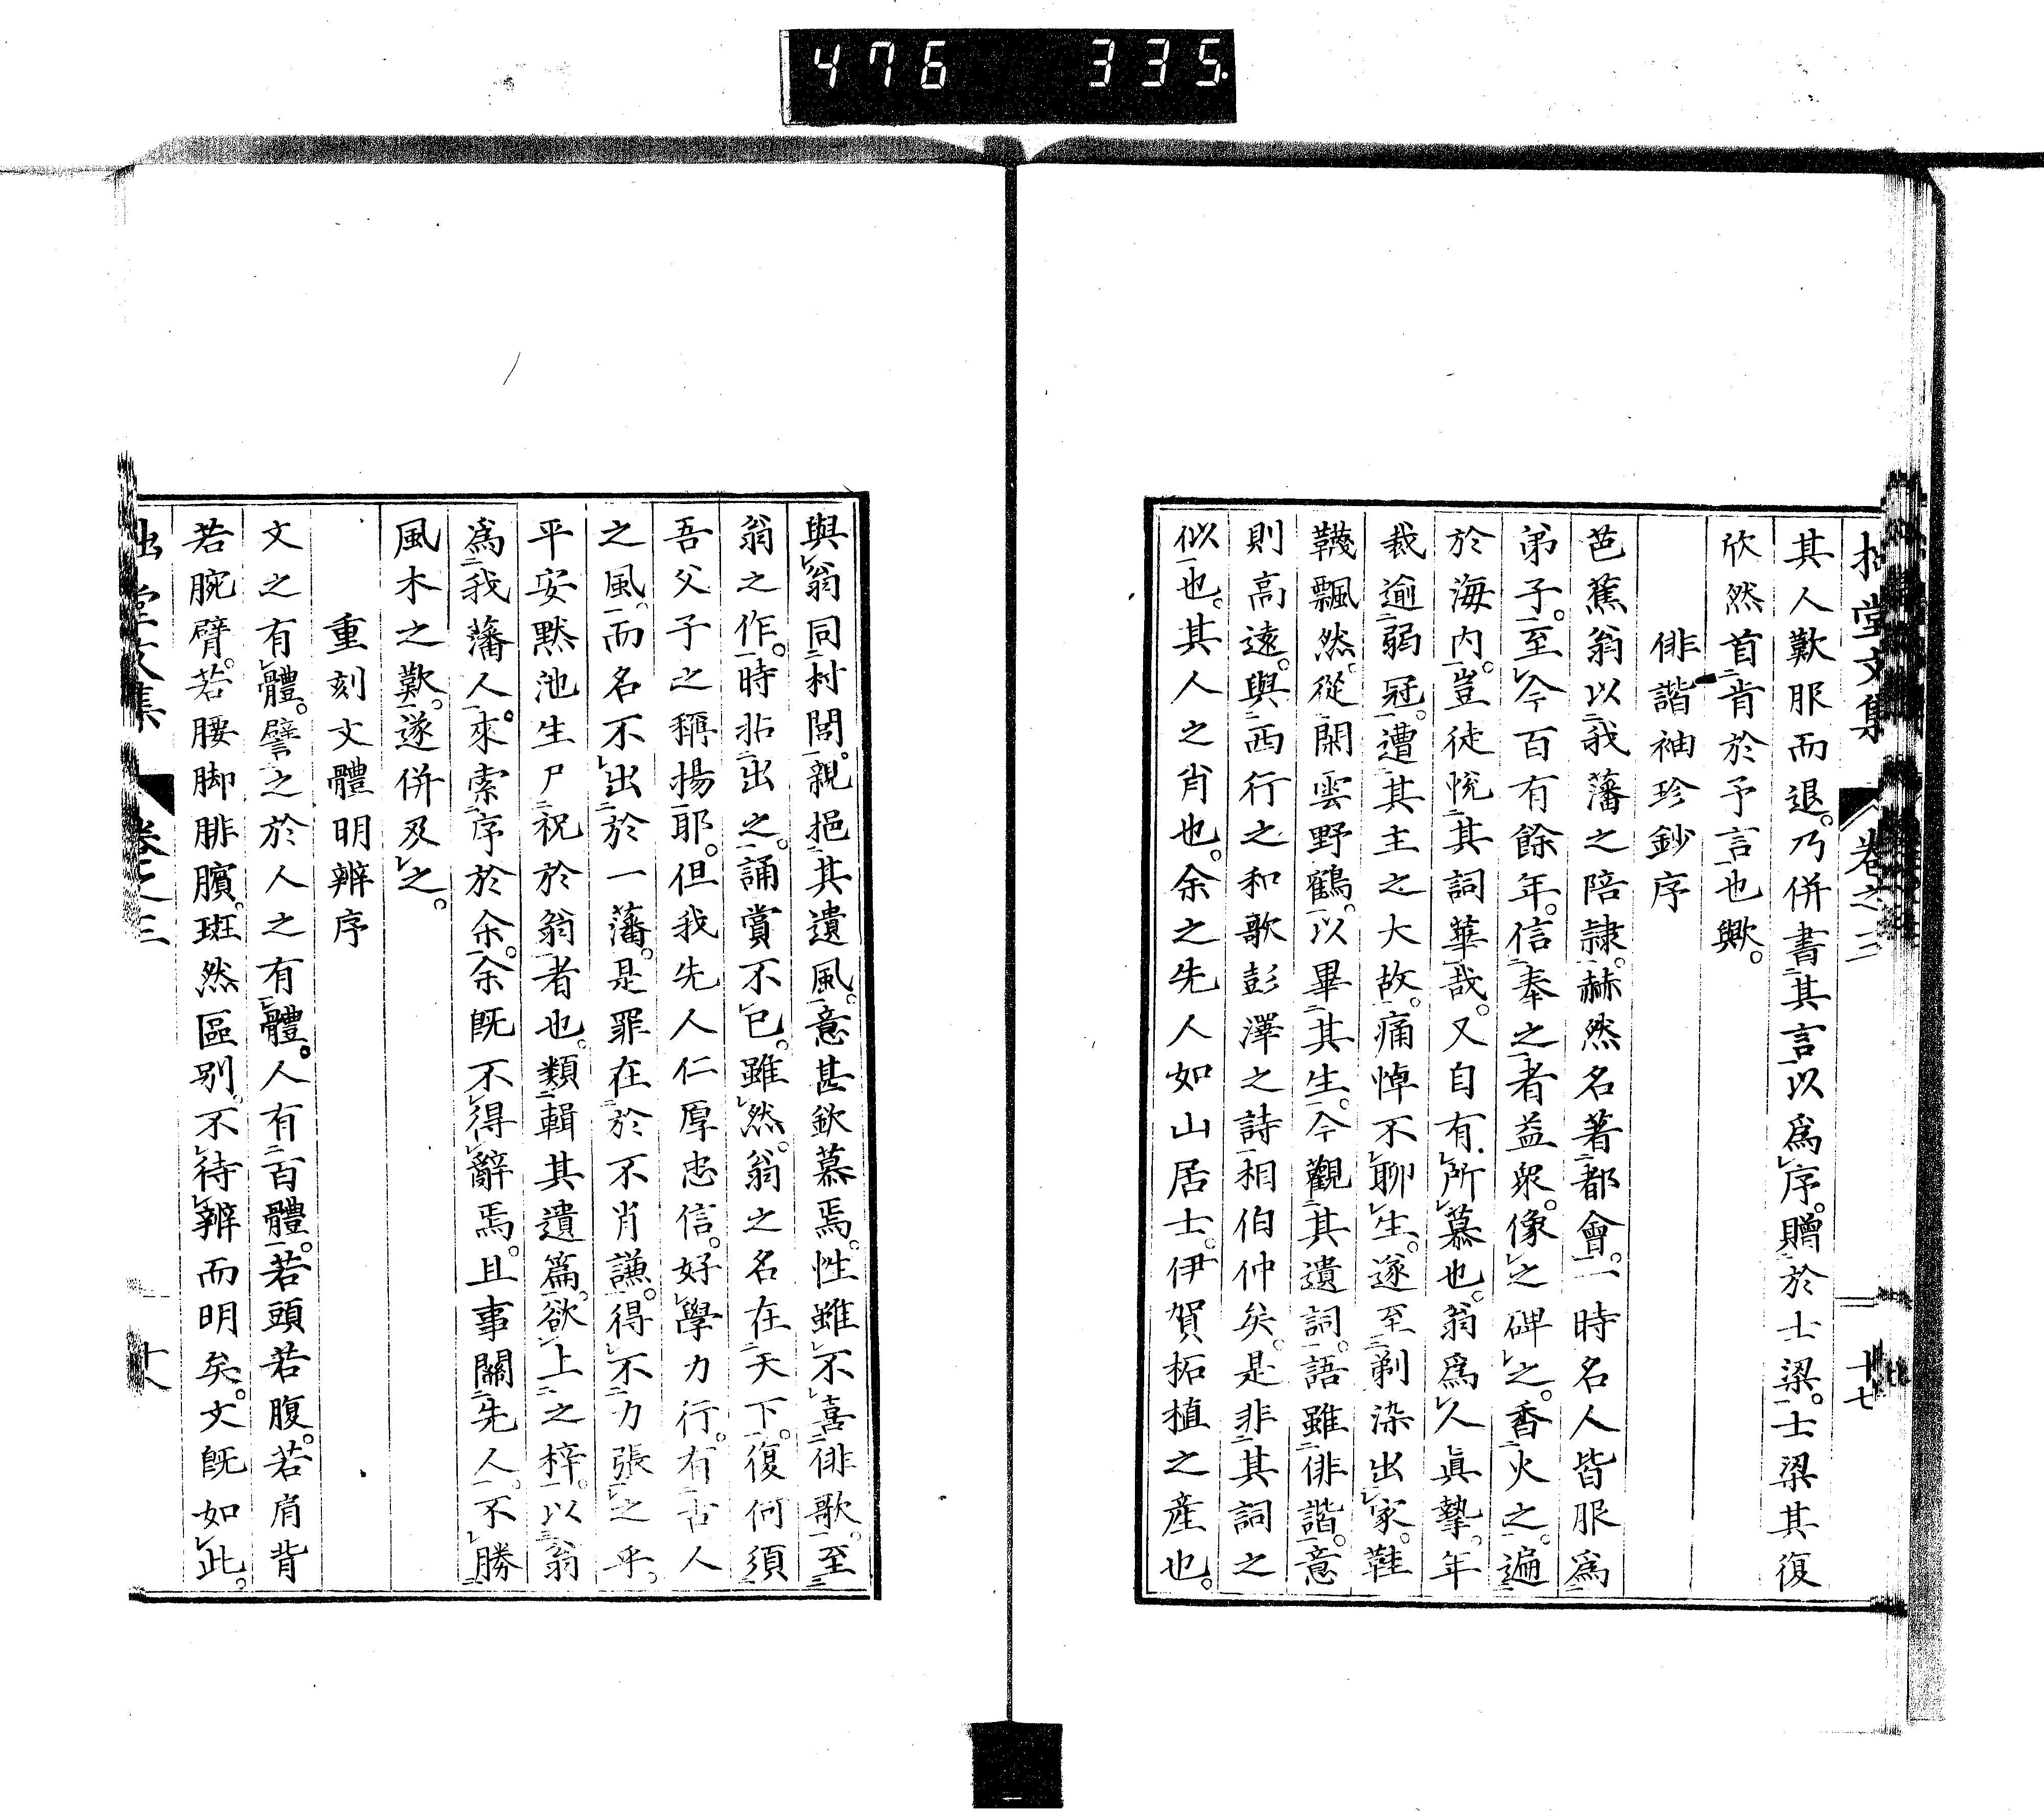 476 335
拙堂文集 卷之三 十七
其人歎服而退。乃併書其言以爲序。贈於士梁。士梁其復
欣然首肯於予言也歟。
俳諧袖珍鈔序
芭蕉翁以我藩之陪隷。赫然名著都會。一時名人皆服爲
弟子。至今百有餘年。信奉之者益衆。像之碑之。香火之。遍
於海内。豈徒悅其詞華哉。又自有所慕也。翁爲人眞摯。年
裁逾弱冠。遭其主之大故。痛悼不聊生。遂至剃染出家。鞋
韈飄然。從閑雲野鶴。以畢其生。今觀其遺詞。語雖俳諧。意
則高遠。與西行之和歌彭澤之詩相伯仲矣。是非其詞之
似也。其人之肖也。余之先人如山居士。伊賀柘植之産也。
與翁同村閭。親挹其遺風。意甚欽慕焉。性雖不喜俳歌。至
翁之作。時拈出之。誦賞不已。雖然。翁之名在天下。復何須
吾父子之稱揚耶。但我先人仁厚忠信。好學力行。有古人
之風。而名不出於一藩。是罪在於不肖謙。得不力張之乎。
平安默池生尸祝於翁者也。類輯其遺篇。欲上之梓。以翁
爲我藩人。來索序於余。余既不得辭焉。且事關先人。不勝
風木之歎。遂併及之。
重刻文體明辨序
文之有體。譬之於人之有體。人有百體。若頭若腹。若肩背
若腕臂。若腰脚腓臏。斑然區別。不待辨而明矣。文既如此。
拙堂文集 卷之三 十八